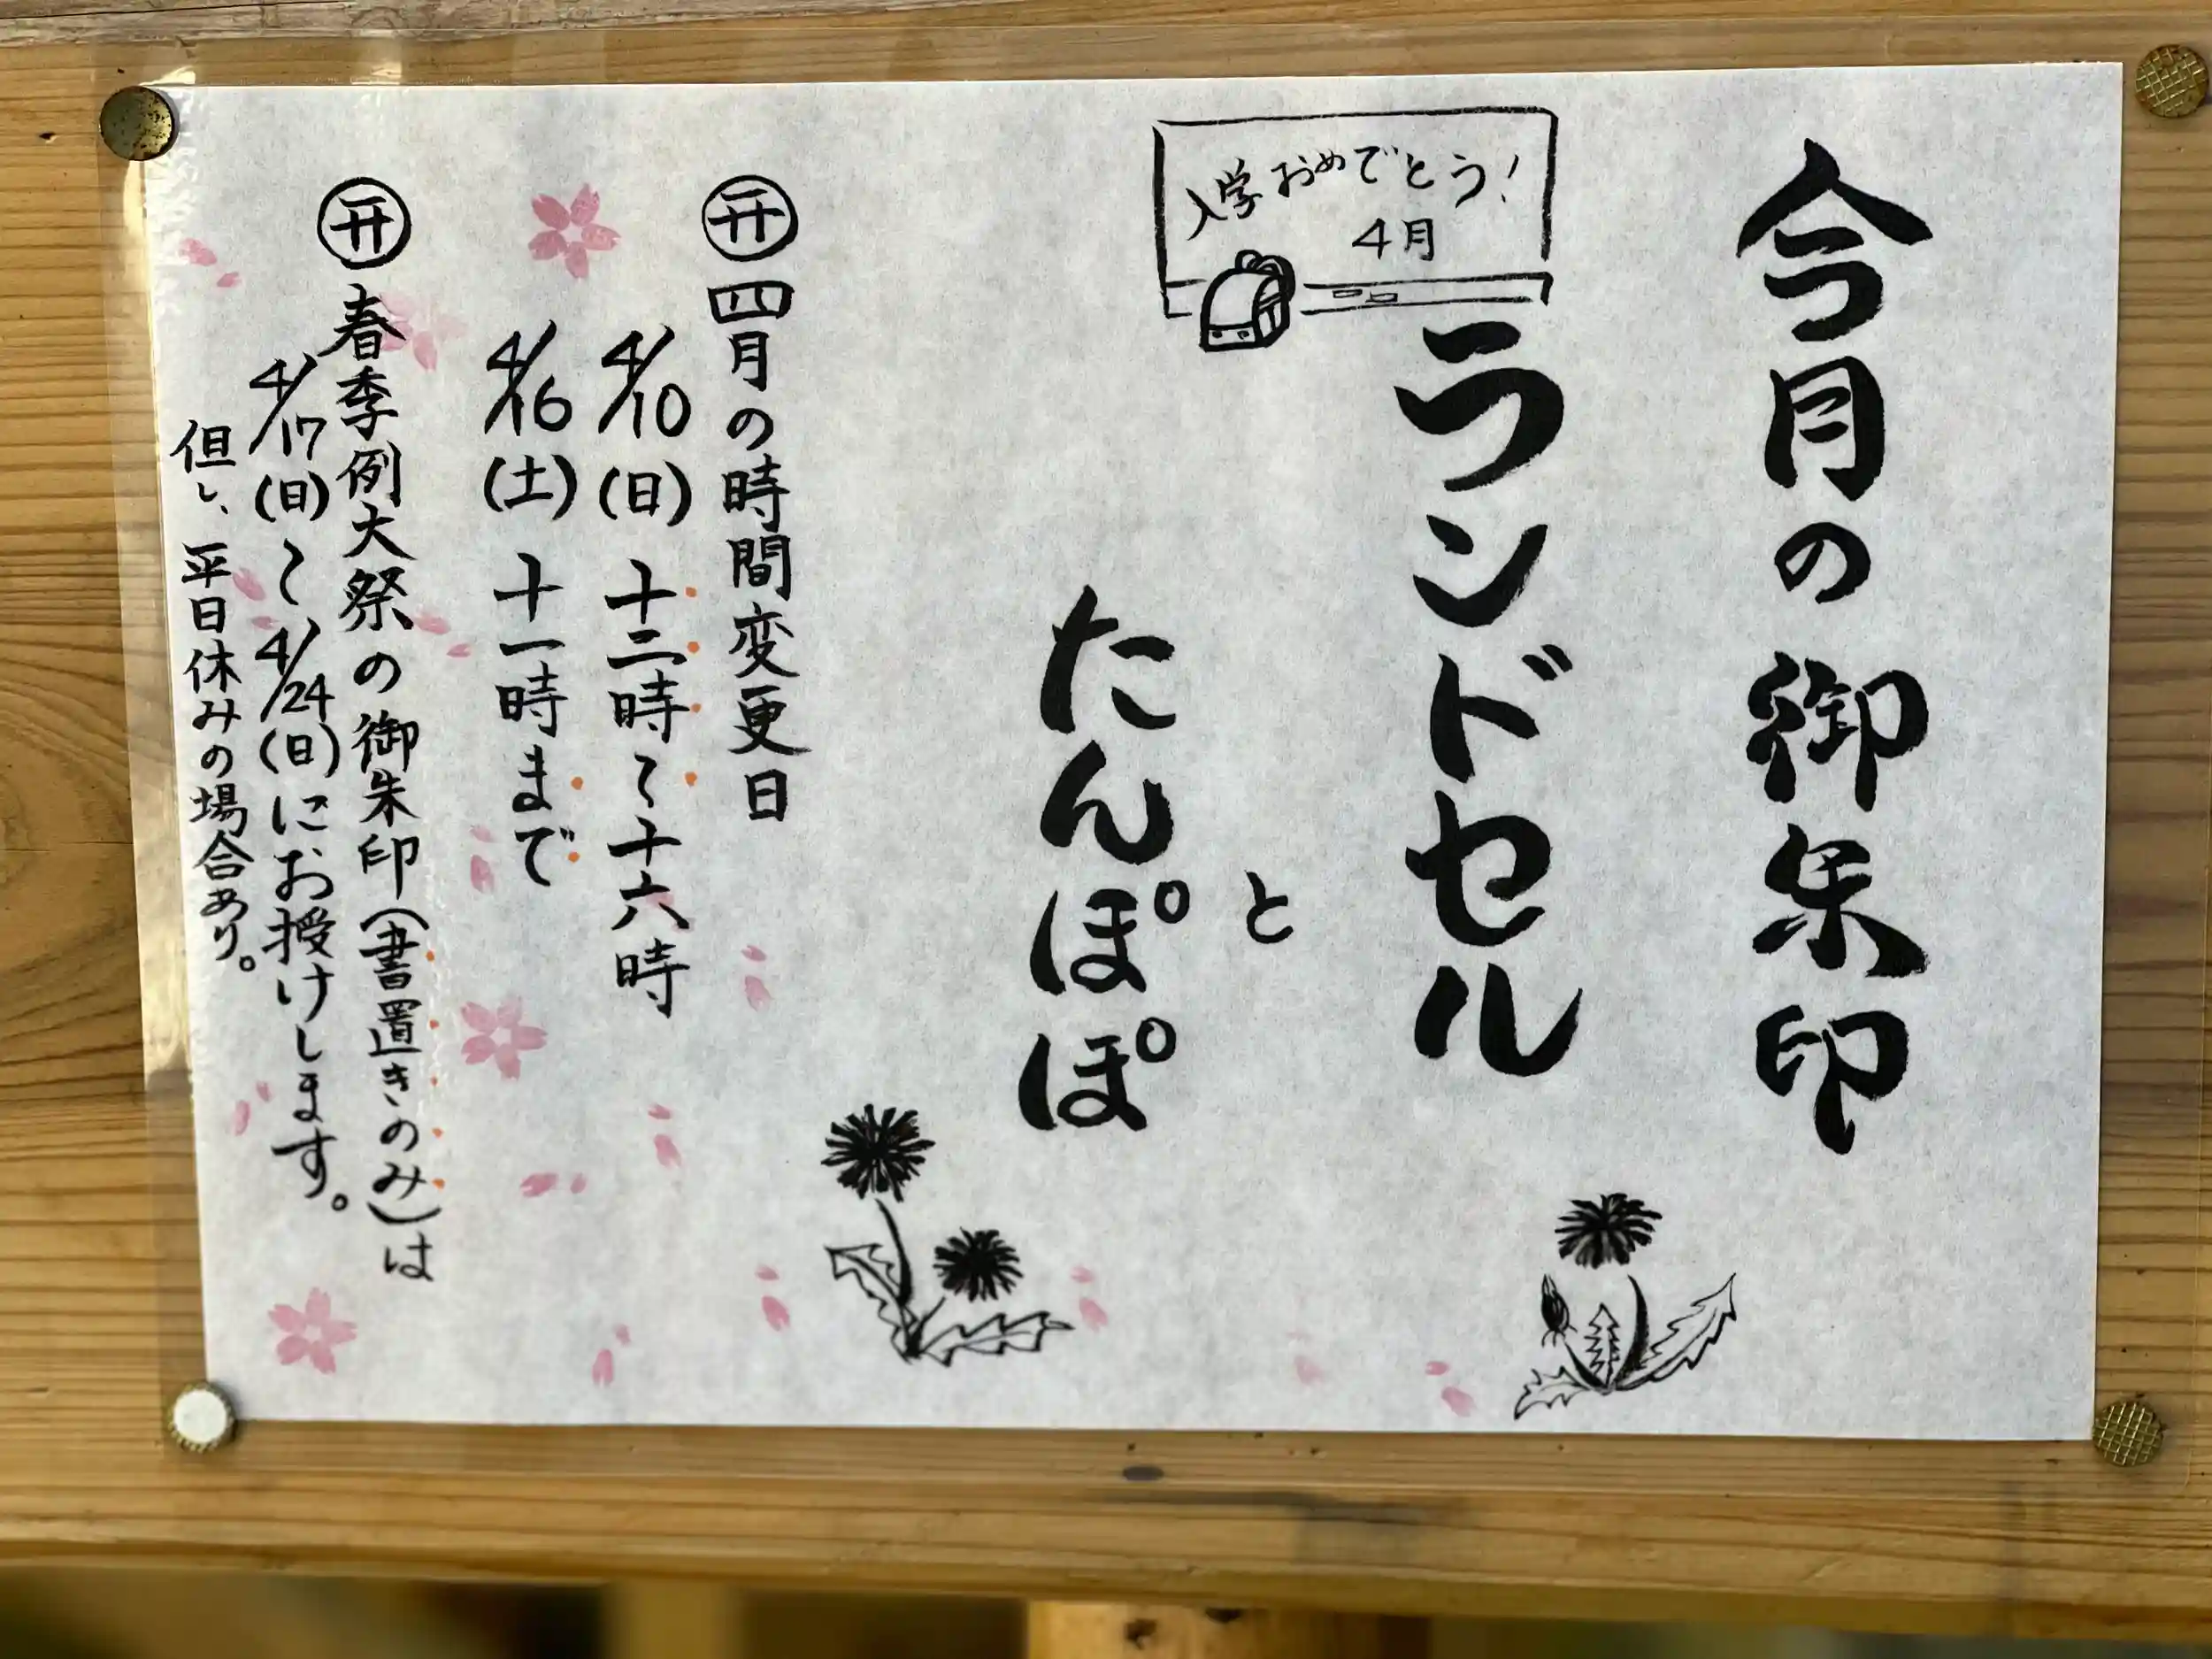 今月の御朱印
入学おめでとう!
4月
ランドセル
と
たんぽぽ
四月の時間変更日
4/10(日)十二時〜十六時
4/16(土)十一時まで
春季例大祭の御朱印(書置きのみ)は
4/17(日)〜4/24(日)にお授けします。
但し、平日休みの場合あり。